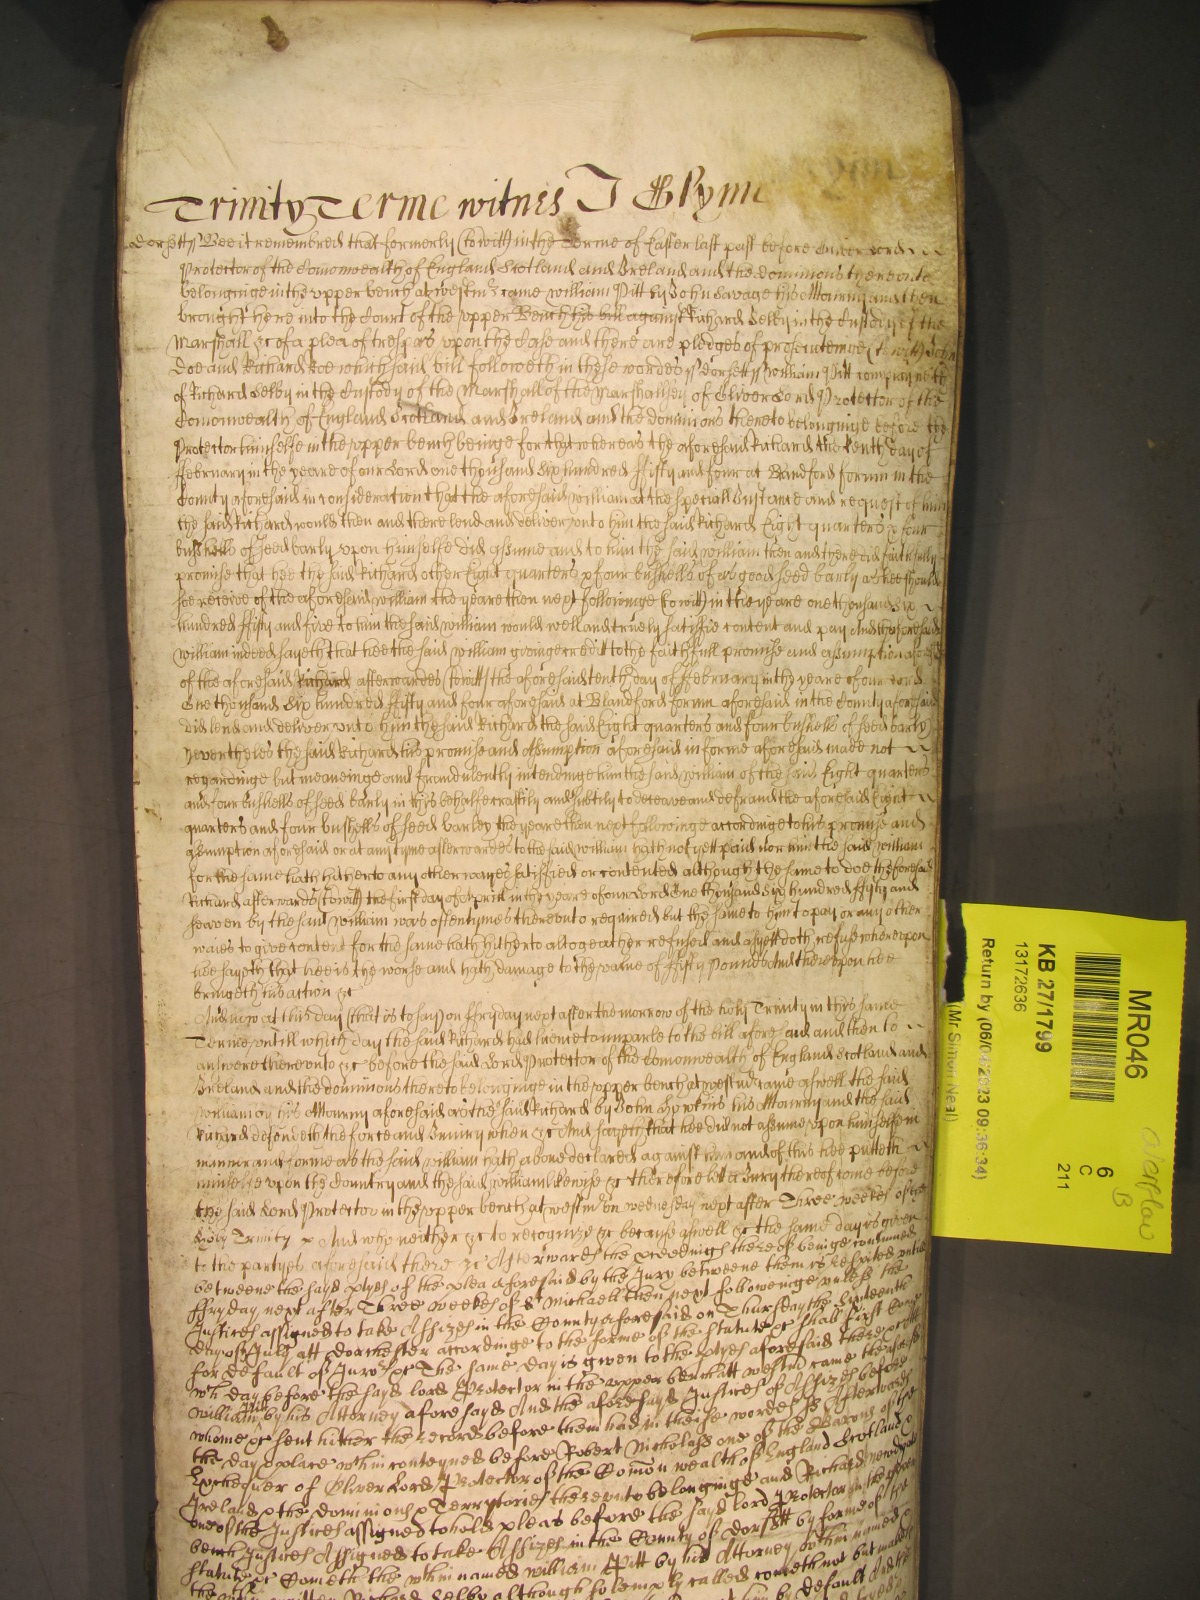 Trinity Terme witnes J Glynne
Dorsett ss Bee it remembred that formerly (to witt) in the Terme of Easter last past before Oliver Lord
Protector of the Comonwealth of England Scotland and Ireland and the dominions thereunto
belonginge in the upper bench at Westmr came William Pitt by John Savage his Attourny and then
brought here into the Court of the upper Bench his bill against Richard Selby in the Custody of the
Marshall &c of a plea of trespas upon the Case and there are pledges of prosecuteinge (to witt) John
Doe and Richard Roe which said bill followeth in these wordes ss Dorsett ss William Pitt complayneth
of Richard Selby in the Custody of the Marshall of the Marshallsey of Oliver Lord Protector of the
Comonwealth of England Scotland and Ireland and the dominions thereto belonginge before the
Protector himselfe in the upper bench beinge for that whereas the aforesaid Richard the tenth day of
ffebruary in the yeare of our Lord one thousand six hundred ffifty and four at Blandford forum in the
County aforesaid in consideration that the aforesaid William at the speciall Instance and request of him
the said Richard would then and there lend and deliver unto him the said Richard Eight quarters & four
bushells of seed barly upon himselfe did assume and to him the said William then and there did faithfully
promise that hee the said Richard other Eight quarters & four bushells of as good seed barly as hee should
soe receive of the aforesaid William the yeare then next followinge (to witt) in the yeare one thousand six
hundred ffifty and five to him the said William would well and truely satisfie content and pay And the aforesaid
William indeed sayeth that hee the said William giveinge credit to the faithfull promise and assumption aforesaid
of the aforesaid Richard afterwardes (to witt) the aforesaid tenth day of ffebruary in the yeare of our Lord
One thousand six hundred ffifty and four aforesaid at Blandford forum aforesaid in the County aforesaid
did lend and deliver unto him the said Richard the said Eight quarters and four bushells of seed barly
Neverthelesse the said Richard his promise and assumption aforesaid in forme aforesaid made not
regardinge but meaneinge and fraudulently intendinge him the said William of the said Eight quarters
and four bushells of seed barly in this behalfe craftily and subtily to deceave and defraud the aforesaid Eight
quarters and four bushells of seed barley the yeare then next followinge accordinge to his promise and
assumption aforesaid or at any tyme afterwardes to the said William hath not yett paid nor him the said William
for the same hath hitherto any other wayes satisfied or contented although the same to doe the aforesaid
Richard afterwardes (to witt) the first day of Aprill in the yeare of our Lord One thousand six hundred ffifty and
seaven by the said William was oftentymes thereunto required but the same to him to pay or any other
waies to give content for the same hath hitherto altogeather refused and as yett doth refuse whereupon
hee sayeth that hee is the worse and hath damage to the value of ffifty Pounds And thereupon hee
bringeth his action &c
And now at this day (that is to say) on ffryday next after the morrow of the holy Trinity in this same
Terme untill which day the said Richard had licence to imparle to the bill aforesaid and then to
answere thereunto &c before the said Lord Protector of the Comonwealth of England Scotland and
Ireland and the dominions thereto belonginge in the upper bench at Westmr came aswell the said
William by his Attourny aforesaid as the said Richard by John Hopkins his Attourny and the said
Richard defendeth the force and Iniury when &c And sayeth that hee did not assume upon himselfe in
manner and forme as the said William hath above declared against him and of this hee putteth
himselfe upon the Country and the said William likewise &c therefore lett a Iury thereof come before
the said Lord Protector in the upper bench at Westmr on wednesday next after Three weekes of the
holy Trinity & And who neither &c to recognize &c because aswell &c the same day is given
to the partyes aforesaid there &c Afterwards the proceedings thereof beinge continued
betweene the sayd ptyes of the plea aforesaid by the Jury betweene them is respited untill
ffryday next after Three weekes of St Michaell then next followeinge unless the
Justices assigned to take Assizes in the County aforesaid on Thursday the
day of July att Dorchester accordinge to the forme of the statute &c shall first come
for default of Jurors &c The same day is given to the ptyes aforesaid there &c Att
wch day before the sayd lord Protector in the upper bench att Westmr came the aforesaid
William Pitt by his Attorney aforesayd And the aforesayd Justices of Assizes before
whome &c sent hither the record before them had in theise wordes ss Afterwards
the day & place within conteyned before Robert Nicholas one of the Barons of the
Exchequer of Oliver Lord Protector of the Comon wealth of England Scotland &
Ireland & the dominions & Terrytories thereunto belonginge and Richard Newdigate
one of the Justices assigned to hold pleas before the sayd lord Protector in the upper
bench Justices Assigned to take Assizes in the County of Dorsett by forme of the
statute &c Cometh the within named William Pitt by his Attorney within named &
the within written Richard Selby although solemply called cometh not but maketh
by default
MR046
KB 27/1799
13172636
Return by (06/04/2023 09:36:34)
(Mr Simon Neal)
6
C
211
B